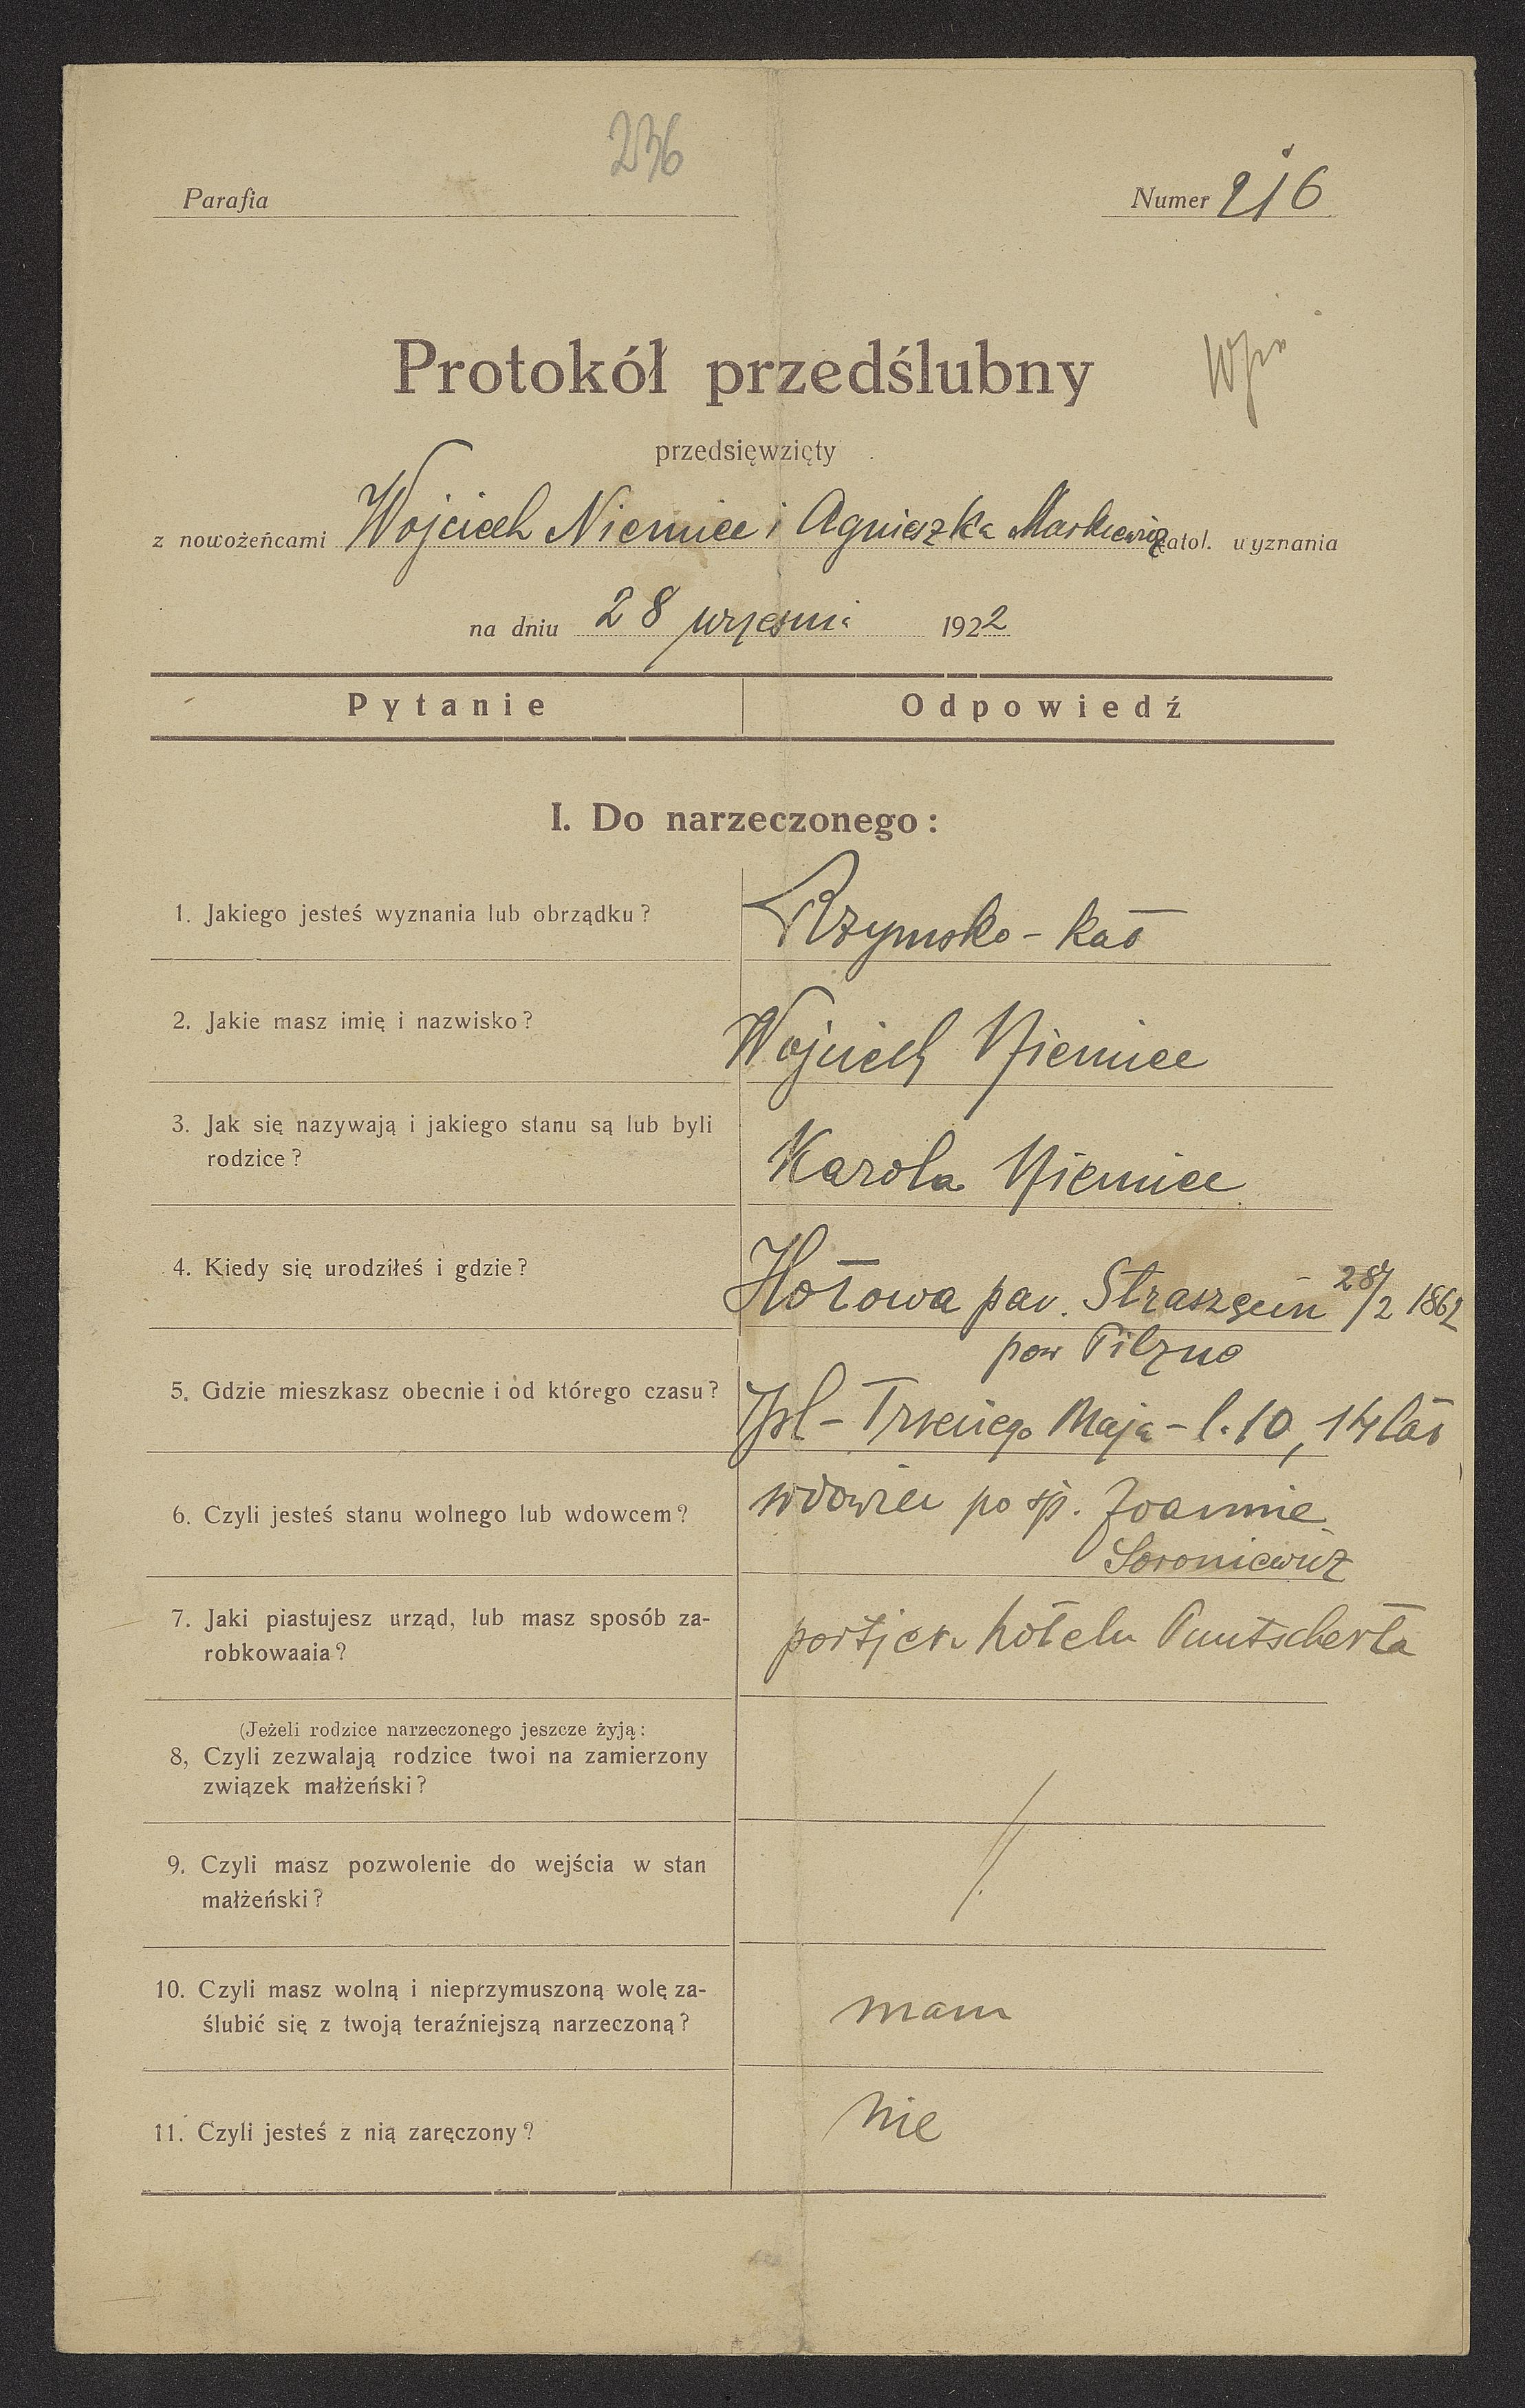 236
Parafia
Numer 216
Protokół przedślubny
przedsięwzięty
z nowożeńcami Wojciech Niemiec i Agnieszka Markiewicz katol. wyznania
na dniu 28 wrześni 1922
Pytanie Odpowiedź
I. Do narzeczonego:
1. Jakiego jesteś wyznania lub obrządku? Rzymsko-kat
2. Jakie masz imię i nazwisko? Wojciech Niemiec
3. Jak się nazywają i jakiego stanu są lub byli
rodzice? Karola Niemiec
4. Kiedy się urodziłeś i gdzie? Hotowa par. Straszęcin 28/2 1862
pow Pilzno
5. Gdzie mieszkasz obecnie i od którego czasu? Trzeciego Maja - l. 10, 14 lat
6. Czyli jesteś stanu wolnego lub wdowcem? wdowiec po śp. Joannie
Soroniewicz
7. Jaki piastujesz urząd, lub masz sposób za-
robkowaaia? portjer hotelu Puntscherta
(Jeżeli rodzice narzeczonego jeszcze żyją:
8, Czyli zezwalają rodzice twoi na zamierzony
związek małżeński?
9. Czyli masz pozwolenie do wejścia w stan
małżeński?
10. Czyli masz wolną i nieprzymuszoną wolę za-
ślubić się z twoją teraźniejszą narzeczoną? mam
11. Czyli jesteś z nią zaręczony? nie